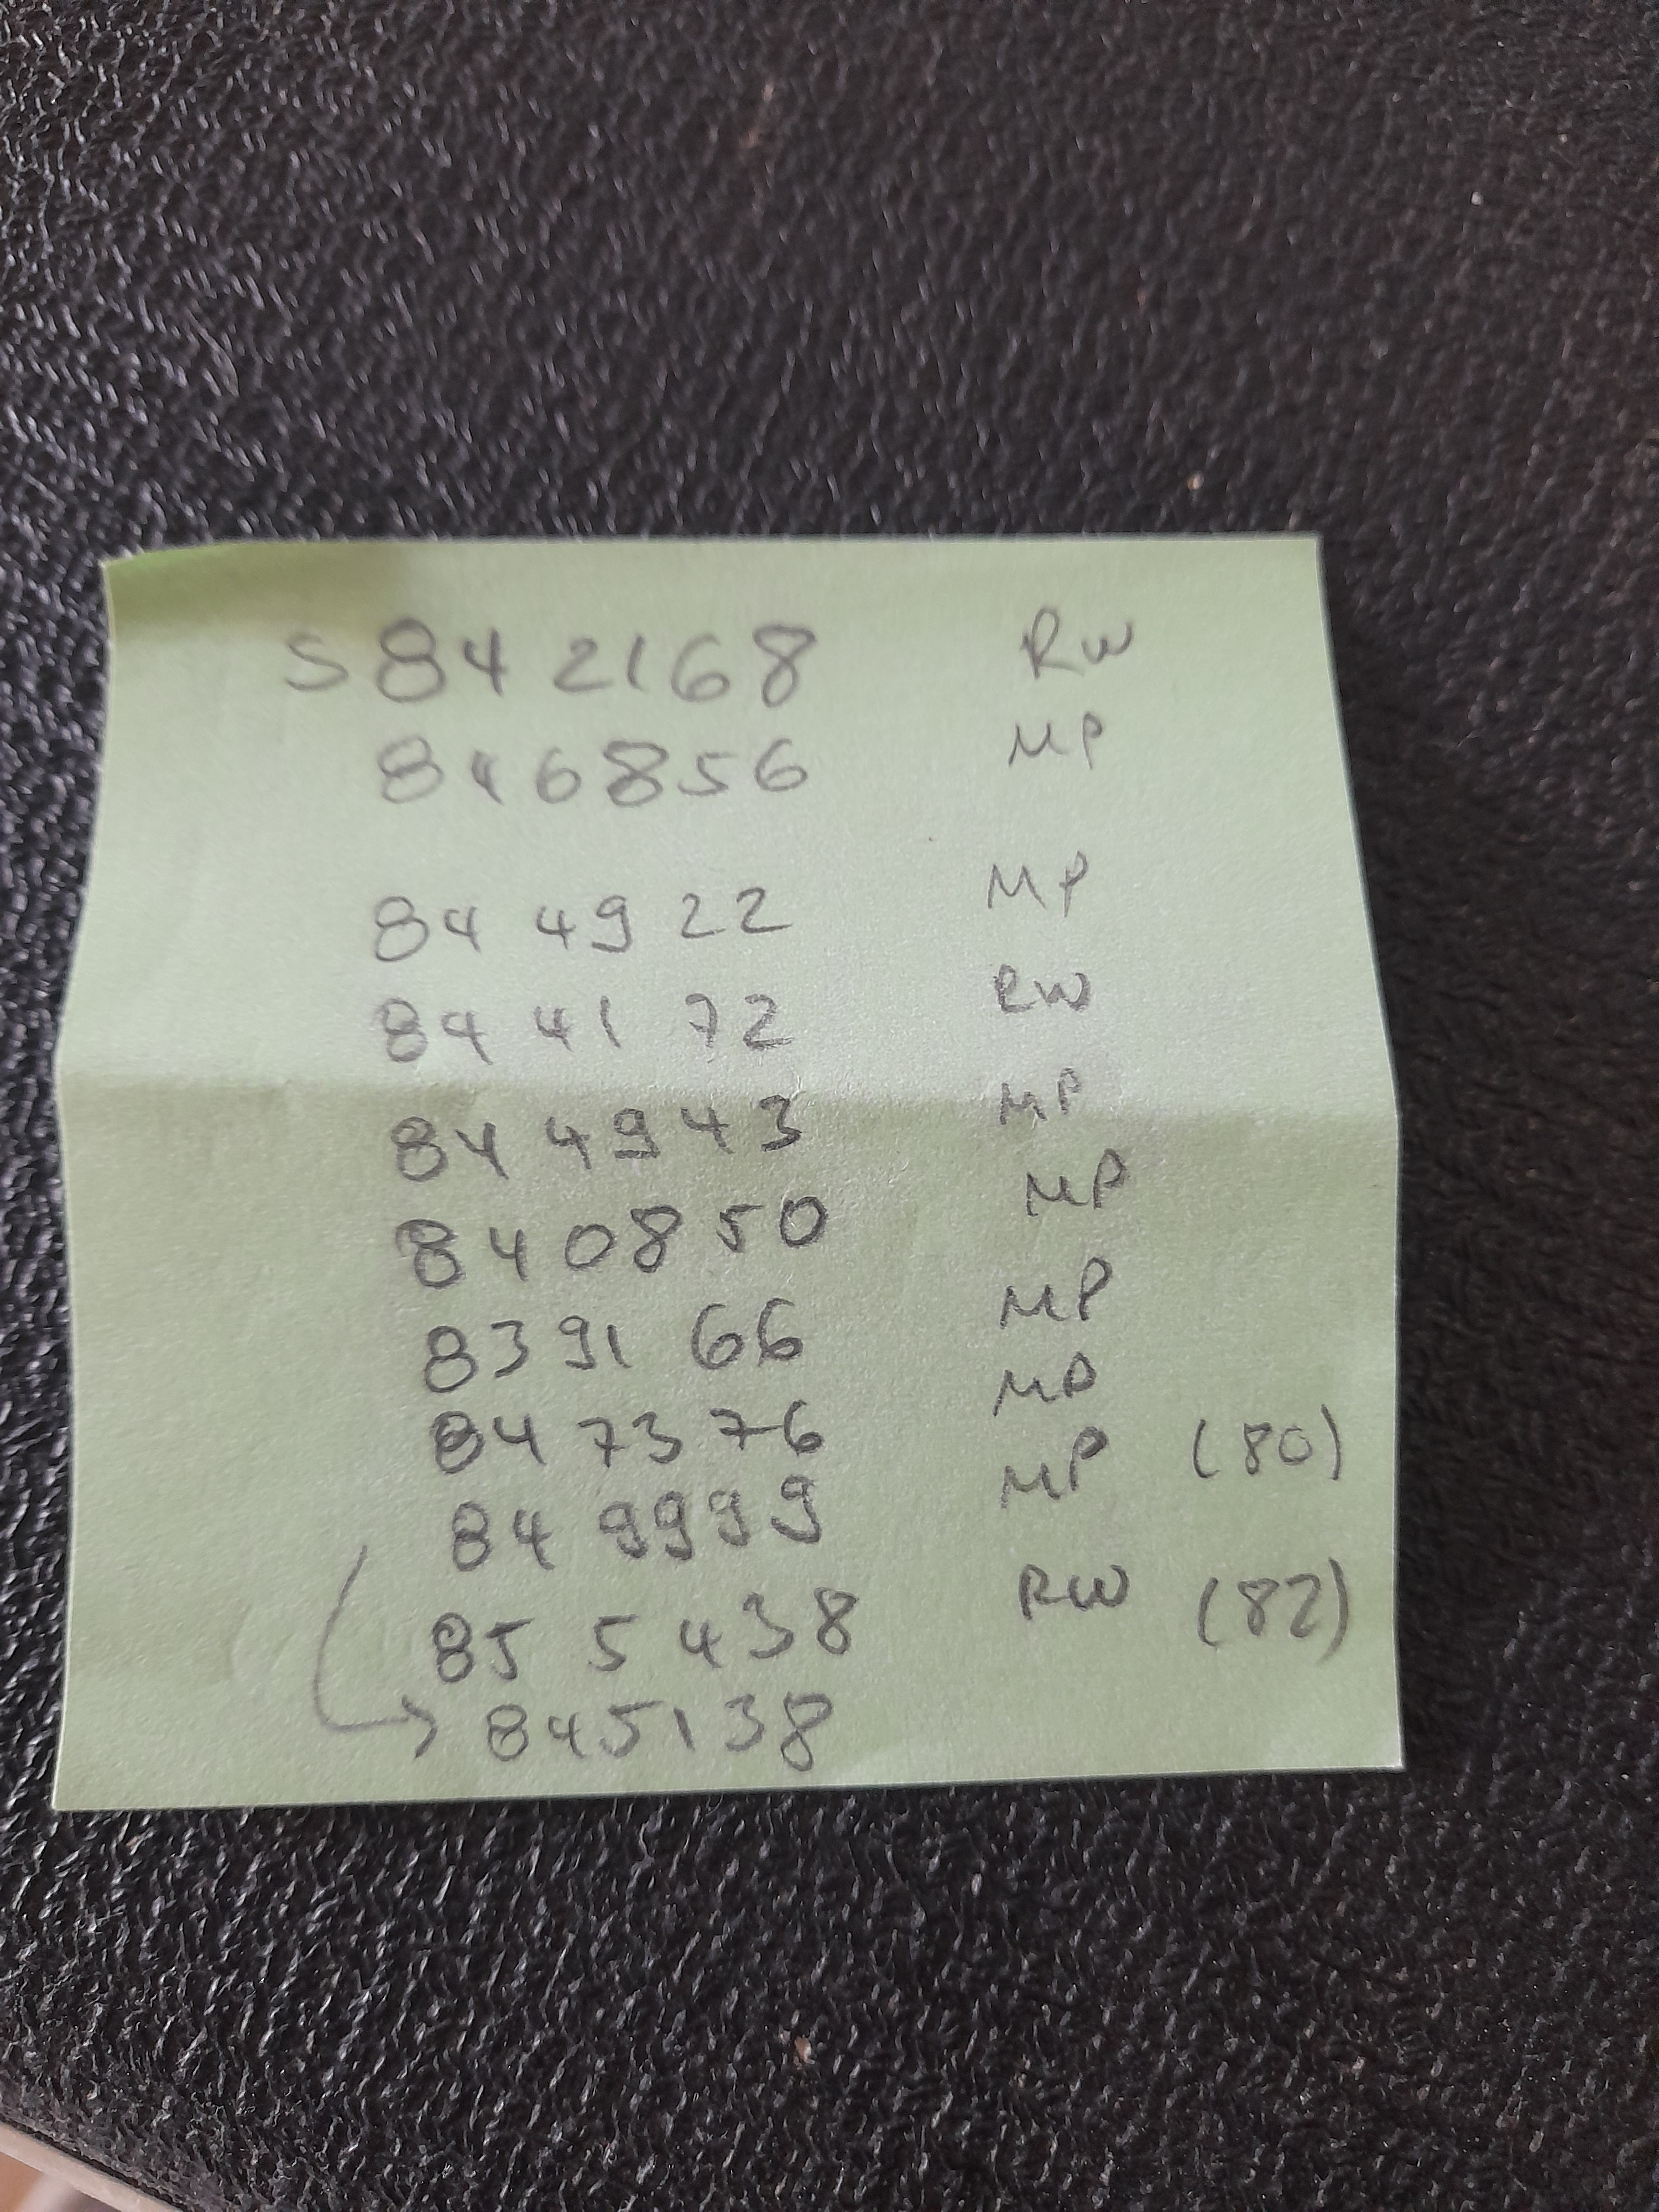 S 84 2168 RW
846856 MP
84 49 22 MP
84 41 72 RW
84 49 43 MP
84 08 50 MP
83 91 66 MP
84 73 76 MP
84 9999 MP (80)
85 5438 RW (82)
→ 845138